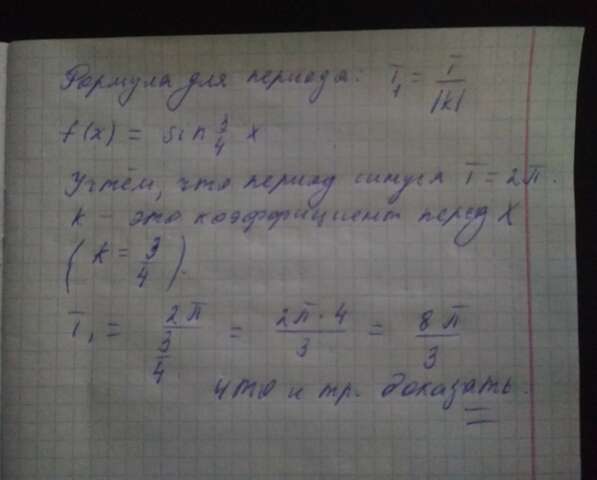 Формула для периода: T₁ = T/|k|
f(x) = sin 3/4 x
Учтём, что период синуса T = 2π.
k – это коэффициент перед X
(k = 3/4).
T₁ = 2π/(3/4) = 2π·4/3 = 8π/3
что и тр. доказать.